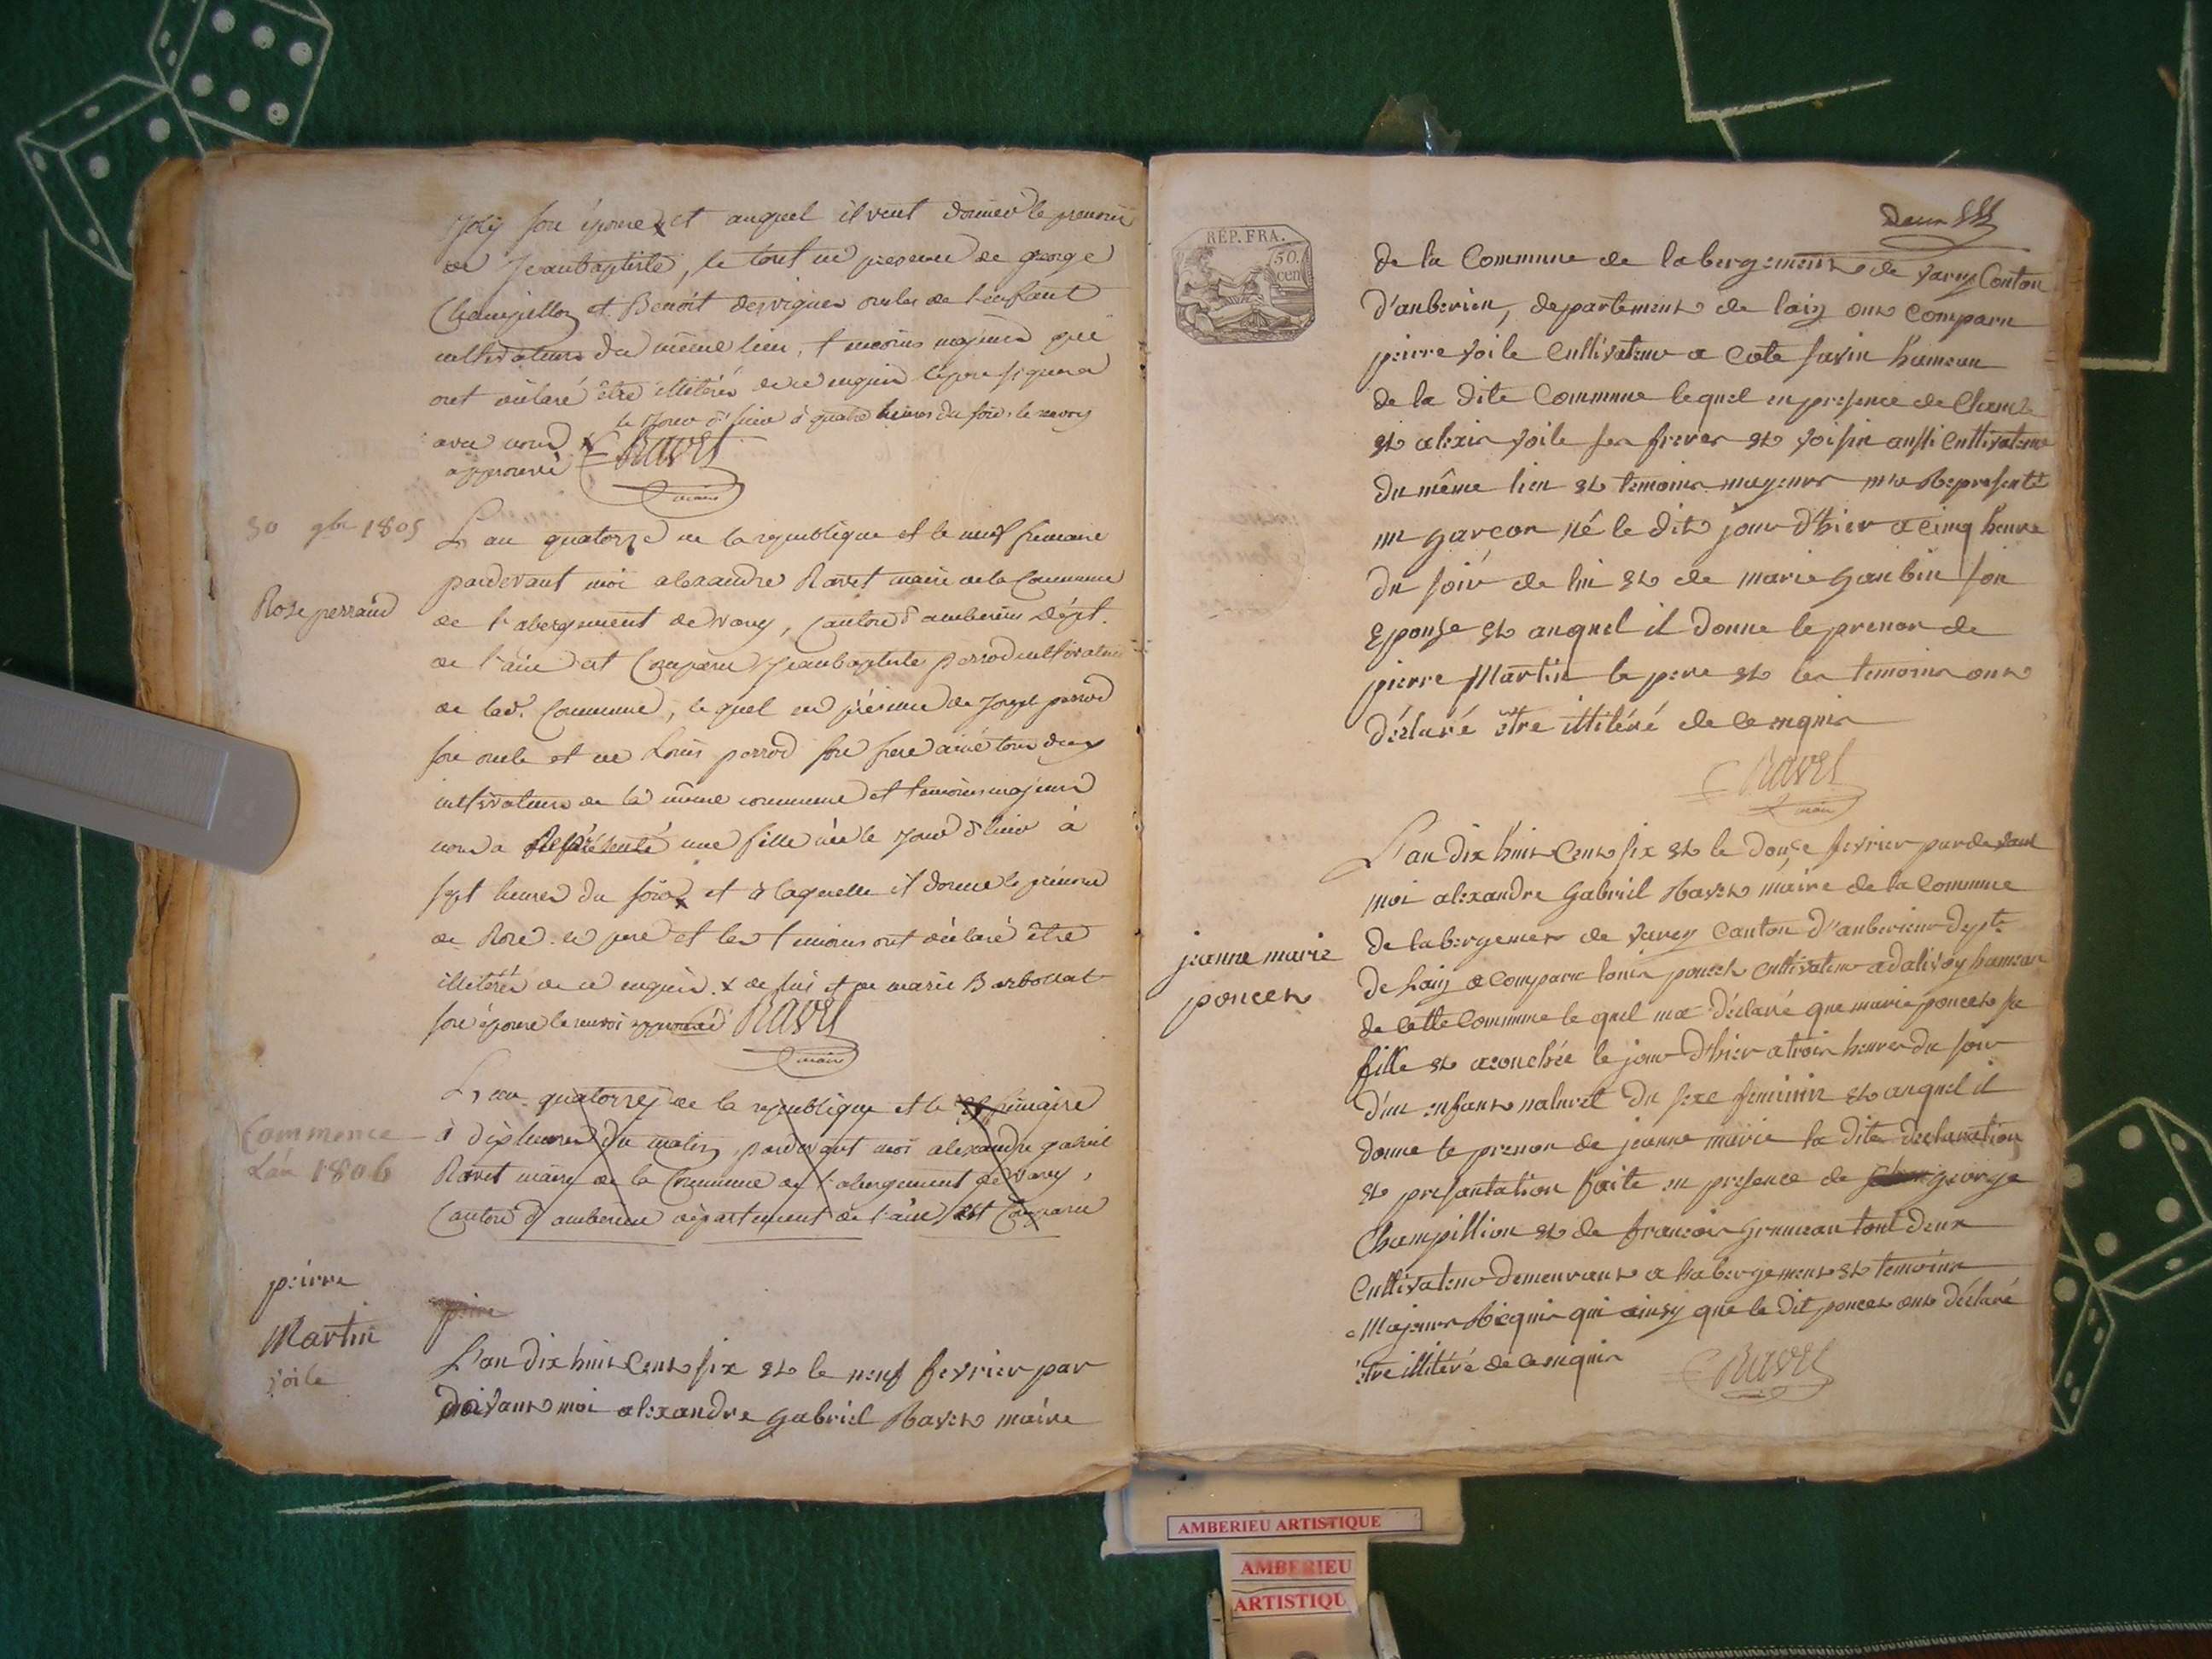 Joly son épouse x et auquel il veut donner le prenom
de Jeanbaptiste, le tout en presence de george
Champillon et Benoit desvignes oncles de l'enfant
cultivateurs du même lieu, temoins majeurs qui
ont déclaré être illitérés de ce enquis le pere signera
le Jour d'hier à quatre heures du soir. le renvoy
avec nous x
approuvé Ravet
maire
30 9bre 1805
L'an quatorze de la republique et le neuf frimaire
pardevant moi alexandre Ravet maire de la Commune
Rose perraud
de l'abergement de varey, canton d'amberieu dépt.
de l'ain est Comparu Jeanbaptiste perrod cultivateur
de lad. Commune, le quel en présence de Joseph perrod
son oncle et de Louis perrod son frere ainé tous deux
cultivateurs de la même commune et temoins majeurs
nous a Représenté une fille née le jour d'hier à
sept heures du soir x et à laquelle il donne le prénom
de Rose. le pere et les temoins ont déclaré être
illitérés de ce enquis. x de lui et de marie Barbollat
son épouse le renvoi approuvé Ravet
maire
L'an quatorze de la republique et le frimaire
Commence
à dix heures du matin, pardevant moi alexandre gabriel
L'an 1806
Ravet maire de la Commune de l'abergement de varey,
Canton d'amberieu département de l'ain est Comparu
peirre
Martin
voile
L'an dix huit Cent six et le neuf fevrier par
devant moi alexandre Gabriel Ravet maire
REP. FRA.
50.
cen
Deux
de la Commune de labergement de varey Conton
d'anberieu, departement de lain ont comparu
peirre voile Cultivateur a Cote savin hameau
de la dite Commune lequel en presence de Claude
et alexis voile ses freres et voisin aussi Cultivateur
du même lieu et temoins mageurs ma Representé
un garcon né le dit jour d'hier a cinq heure
du soir de lui et de marie Gaubin son
Eponse et auquel il donne le prenon de
pierre Martin le pere et les temoins ont
déclaré être illitéré de ce enquis
Ravet
maire
L'an dix huit Cent six et le douze fevrier pardevant
moi alexandre Gabriel Ravet maire de la Commune
jeanne marie
poncet
de labergement de varey Canton d'anberieu depte
de Lain a Comparu louis poncet Cultivateur a dalivoy hameau
de Cette Commune le quel ma déclaré que marie poncet sa
fille et acouchée le jour d'hier a trois heures du soir
d'un enfant naturel du sexe feminin et auquel il
donne le prenon de jeanne marie la dite declaration
et presantation faite en presence de george
Champillion et de francois Grumeau tout deux
Cultivateur demeurant a labergement et temoins
Majeurs Requis qui ainsy que le dit poncet ont déclaré
être illitéré de ce enquis Ravet
AMBERIEU ARTISTIQUE
AMBERIEU
ARTISTIQU